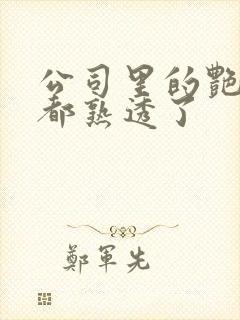 公司里的艷
都熟透了
鄭軍先